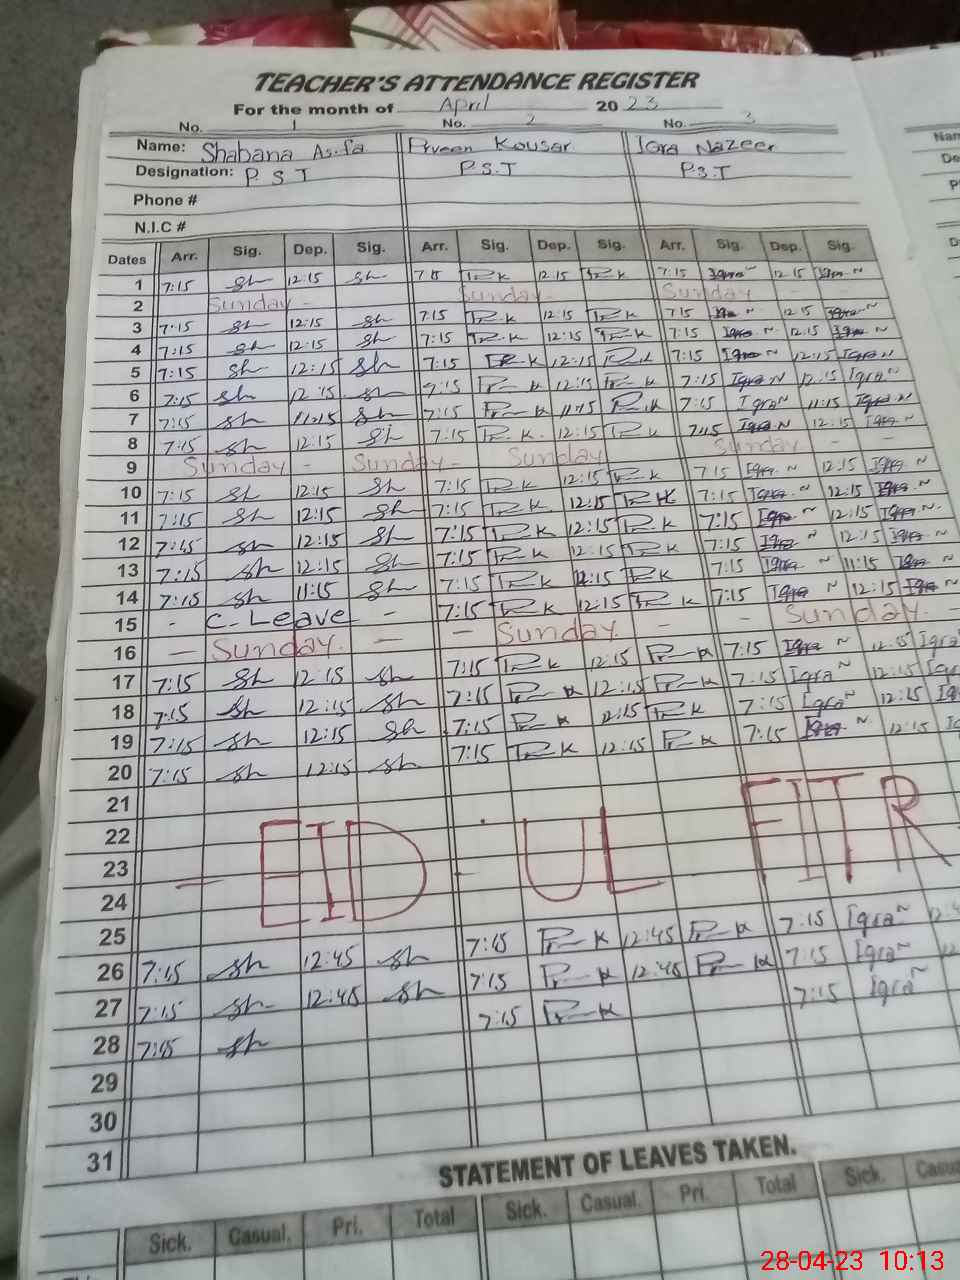 TEACHER'S ATTENDANCE REGISTER
For the month of April 2023
No. 1 No. 2 No. 3
Name: Shabana Asifa Prveen Kousar Iqra Nazeer
Designation: P S T P.S.T P.S.T
Phone #
N.I.C #
Dates Arr. Sig. Dep. Sig. Arr. Sig. Dep. Sig. Arr. Sig. Dep. Sig.
1 7:15 sh 12:15 sh 7:15 Pr K 12:15 Pr K 7:15 Iqra N 12:15 Iqra N
2 Sunday - Sunday - Sunday - -
3 7:15 sh 12:15 sh 7:15 Pr K 12:15 Pr K 7:15 Iqra N 12:15 Iqra N
4 7:15 sh 12:15 sh 7:15 Pr K 12:15 Pr K 7:15 Iqra N 12:15 Iqra N
5 7:15 sh 12:15 sh 7:15 Pr K 12:15 Pr K 7:15 Iqra N 12:15 Iqra N
6 7:15 sh 12:15 sh 7:15 Pr K 12:15 Pr K 7:15 Iqra N 12:15 Iqra N
7 7:15 sh 11:15 sh 7:15 Pr K 11:15 Pr K 7:15 Iqra N 11:15 Iqra N
8 7:15 sh 12:15 sh 7:15 Pr K 12:15 Pr K 7:15 Iqra N 12:15 Iqra N
9 Sunday - Sunday - Sunday Sunday - -
10 7:15 sh 12:15 sh 7:15 Pr K 12:15 Pr K 7:15 Iqra N 12:15 Iqra N
11 7:15 sh 12:15 sh 7:15 Pr K 12:15 Pr K 7:15 Iqra N 12:15 Iqra N
12 7:15 sh 12:15 sh 7:15 Pr K 12:15 Pr K 7:15 Iqra N 12:15 Iqra N
13 7:15 sh 12:15 sh 7:15 Pr K 12:15 Pr K 7:15 Iqra N 12:15 Iqra N
14 7:15 sh 11:15 sh 7:15 Pr K 12:15 Pr K 7:15 Iqra N 11:15 Iqra N
15 - C. Leave - 7:15 Pr K 12:15 Pr K 7:15 Iqra N 12:15 Iqra N
16 - Sunday. - - Sunday. - - Sunday. -
17 7:15 sh 12:15 sh 7:15 Pr K 12:15 Pr K 7:15 Iqra N 12:15 Iqra
18 7:15 sh 12:15 sh 7:15 Pr K 12:15 Pr K 7:15 Iqra N 12:15 Iqra
19 7:15 sh 12:15 sh 7:15 Pr K 12:15 Pr K 7:15 Iqra N 12:15
20 7:15 sh 12:15 sh 7:15 Pr K 12:15 Pr K 7:15 Iqra N 12:15
21
22
23 - EID - UL FITR
24
25
26 7:15 sh 12:45 sh 7:15 Pr K 12:45 Pr K 7:15 Iqra N
27 7:15 sh 12:45 sh 7:15 Pr K 12:45 Pr K 7:15 Iqra N
28 7:15 sh 7:15 Pr K 7:15 Iqra N
29
30
31
STATEMENT OF LEAVES TAKEN.
Sick. Casual. Pri. Total Sick. Casual. Pri. Total Sick.
28-04-23 10:13